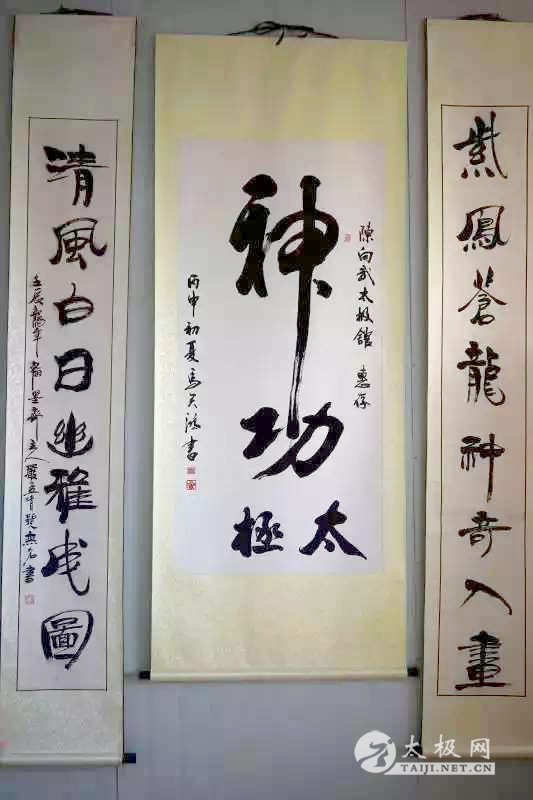 紫鳳蒼龍神奇入畫
陳向武太极館 惠存
神功
太極
丙申初夏馬天
書
清風白日幽雅成圖
壬辰龍年
墨齋主人
書
太极网
TAIJI.NET.CN